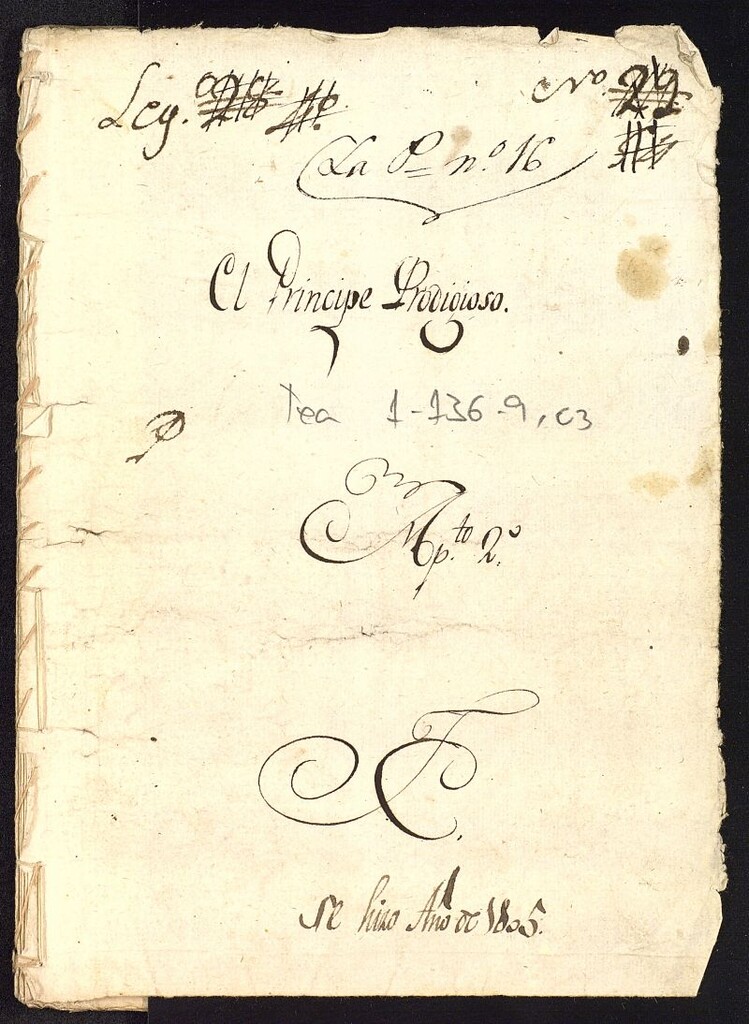 Leg. Nro. 29
La P. n.º 16
El Principe Prodigioso.
Tea 1-136-9, C3
Ap.to 2.º
F.
Se hizo Año de 1805.